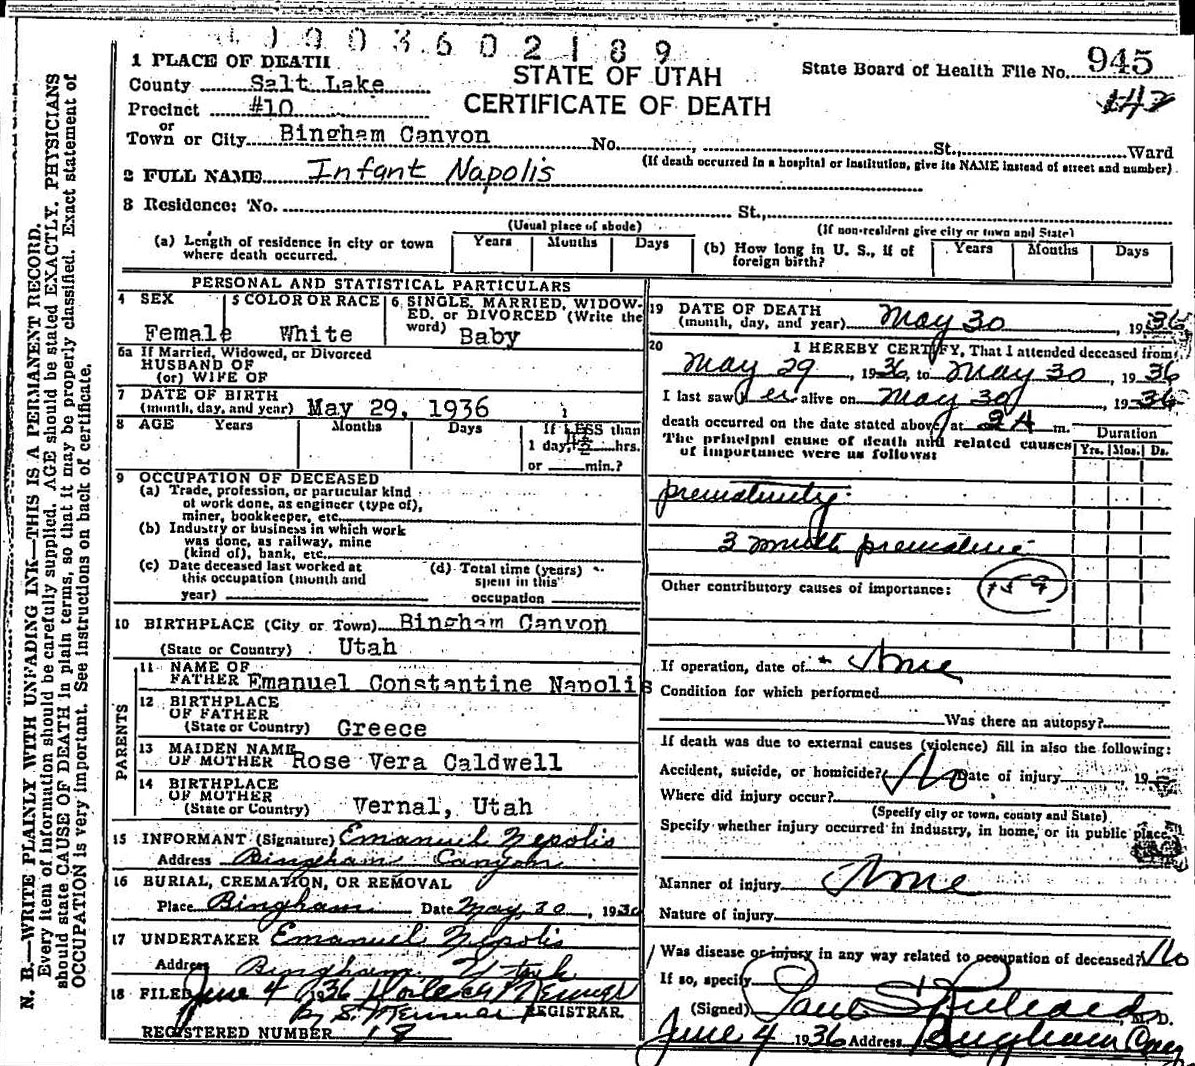 1903602189
1 PLACE OF DEATH
STATE OF UTAH
CERTIFICATE OF DEATH
State Board of Health File No. 945
147
County Salt Lake
Precinct #10
or
Town or City Bingham Canyon No. , St., Ward
(If death occurred in a hospital or institution, give its NAME instead of street and number)
2 FULL NAME Infant Napolis
3 Residence: No. St.,
(Usual place of abode) (If non-resident give city or town and State)
(a) Length of residence in city or town where death occurred. Years Months Days
(b) How long in U. S., if of foreign birth? Years Months Days
PERSONAL AND STATISTICAL PARTICULARS
4 SEX Female
5 COLOR OR RACE White
6 SINGLE, MARRIED, WIDOWED, or DIVORCED (Write the word) Baby
6a If Married, Widowed, or Divorced
HUSBAND OF
(or) WIFE OF
7 DATE OF BIRTH
(month, day, and year) May 29, 1936
8 AGE Years Months Days If LESS than
1 day, hrs.
or min.?
9 OCCUPATION OF DECEASED
(a) Trade, profession, or particular kind
of work done, as engineer (type of),
miner, bookkeeper, etc.
(b) Industry or business in which work
was done, as railway, mine
(kind of), bank, etc.
(c) Date deceased last worked at
this occupation (month and
year)
(d) Total time (years)
spent in this
occupation
10 BIRTHPLACE (City or Town) Bingham Canyon
(State or Country) Utah
PARENTS
11 NAME OF
FATHER Emanuel Constantine Napolis
12 BIRTHPLACE
OF FATHER
(State or Country) Greece
13 MAIDEN NAME
OF MOTHER Rose Vera Caldwell
14 BIRTHPLACE
OF MOTHER
(State or Country) Vernal, Utah
15 INFORMANT (Signature) Emanuel Nepolis
Address Bingham Canyon
16 BURIAL, CREMATION, OR REMOVAL
Place Bingham Date May 30, 1936
17 UNDERTAKER Emanuel Nepolis
Address Bingham Utah
18 FILED June 4 1936
By S. REGISTRAR.
REGISTERED NUMBER 18
19 DATE OF DEATH
(month, day, and year) May 30, 1936
20 I HEREBY CERTIFY, That I attended deceased from
May 29, 1936, to May 30, 1936
I last saw her alive on May 30, 1936
death occurred on the date stated above, at 2 A m.
The principal cause of death and related causes
of importance were as follows:
Duration
Yrs. Mos. Ds.
prematurity
3 month premature
Other contributory causes of importance:
159
If operation, date of None
Condition for which performed
Was there an autopsy?
If death was due to external causes (violence) fill in also the following:
Accident, suicide, or homicide? No Date of injury , 19
Where did injury occur?
(Specify city or town, county and State)
Specify whether injury occurred in industry, in home, or in public place
Manner of injury None
Nature of injury
Was disease or injury in any way related to occupation of deceased? No
If so, specify
(Signed) Paul S. Richards, M. D.
June 4 1936 Address Bingham Cany
N. B.—WRITE PLAINLY WITH UNFADING INK—THIS IS A PERMANENT RECORD.
Every item of information should be carefully supplied. AGE should be stated EXACTLY. PHYSICIANS
should state CAUSE OF DEATH in plain terms, so that it may be properly classified. Exact statement of
OCCUPATION is very important. See instructions on back of certificate.